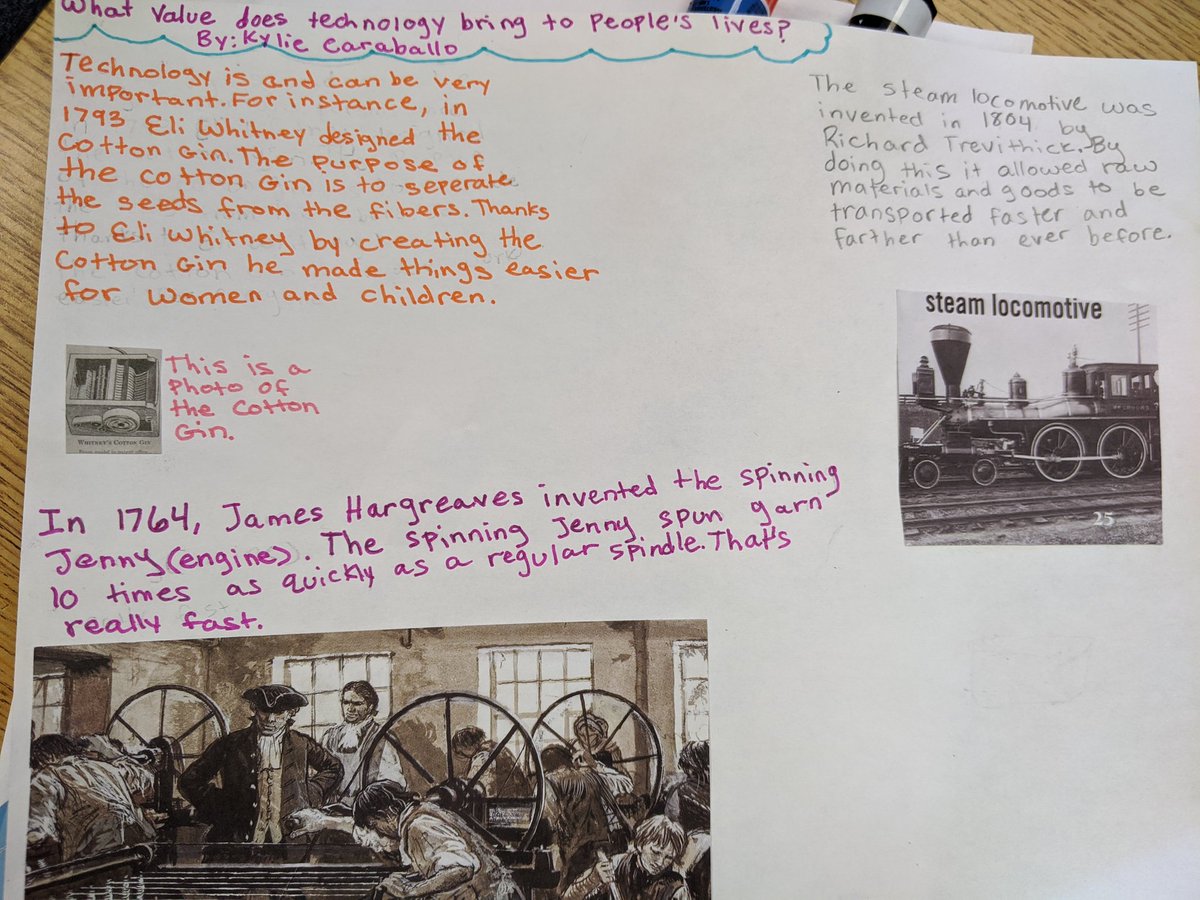 What Value does technology bring to People's lives?
By: Kylie Caraballo
Technology is and can be very
important. For instance, in
1793 Eli Whitney designed the
Cotton Gin. The purpose of
the cotton Gin is to seperate
the seeds from the fibers. Thanks
to Eli Whitney by creating the
Cotton Gin he made things easier
for women and children.
This is a
Photo of
the Cotton
Gin.
WHITNEY'S COTTON GIN
The steam locomotive was
invented in 1804 by
Richard Trevithick. By
doing this it allowed raw
materials and goods to be
transported faster and
farther than ever before.
steam locomotive
25
In 1764, James Hargreaves invented the spinning
Jenny (engine). The spinning Jenny spun yarn
10 times as quickly as a regular spindle. That's
really fast.